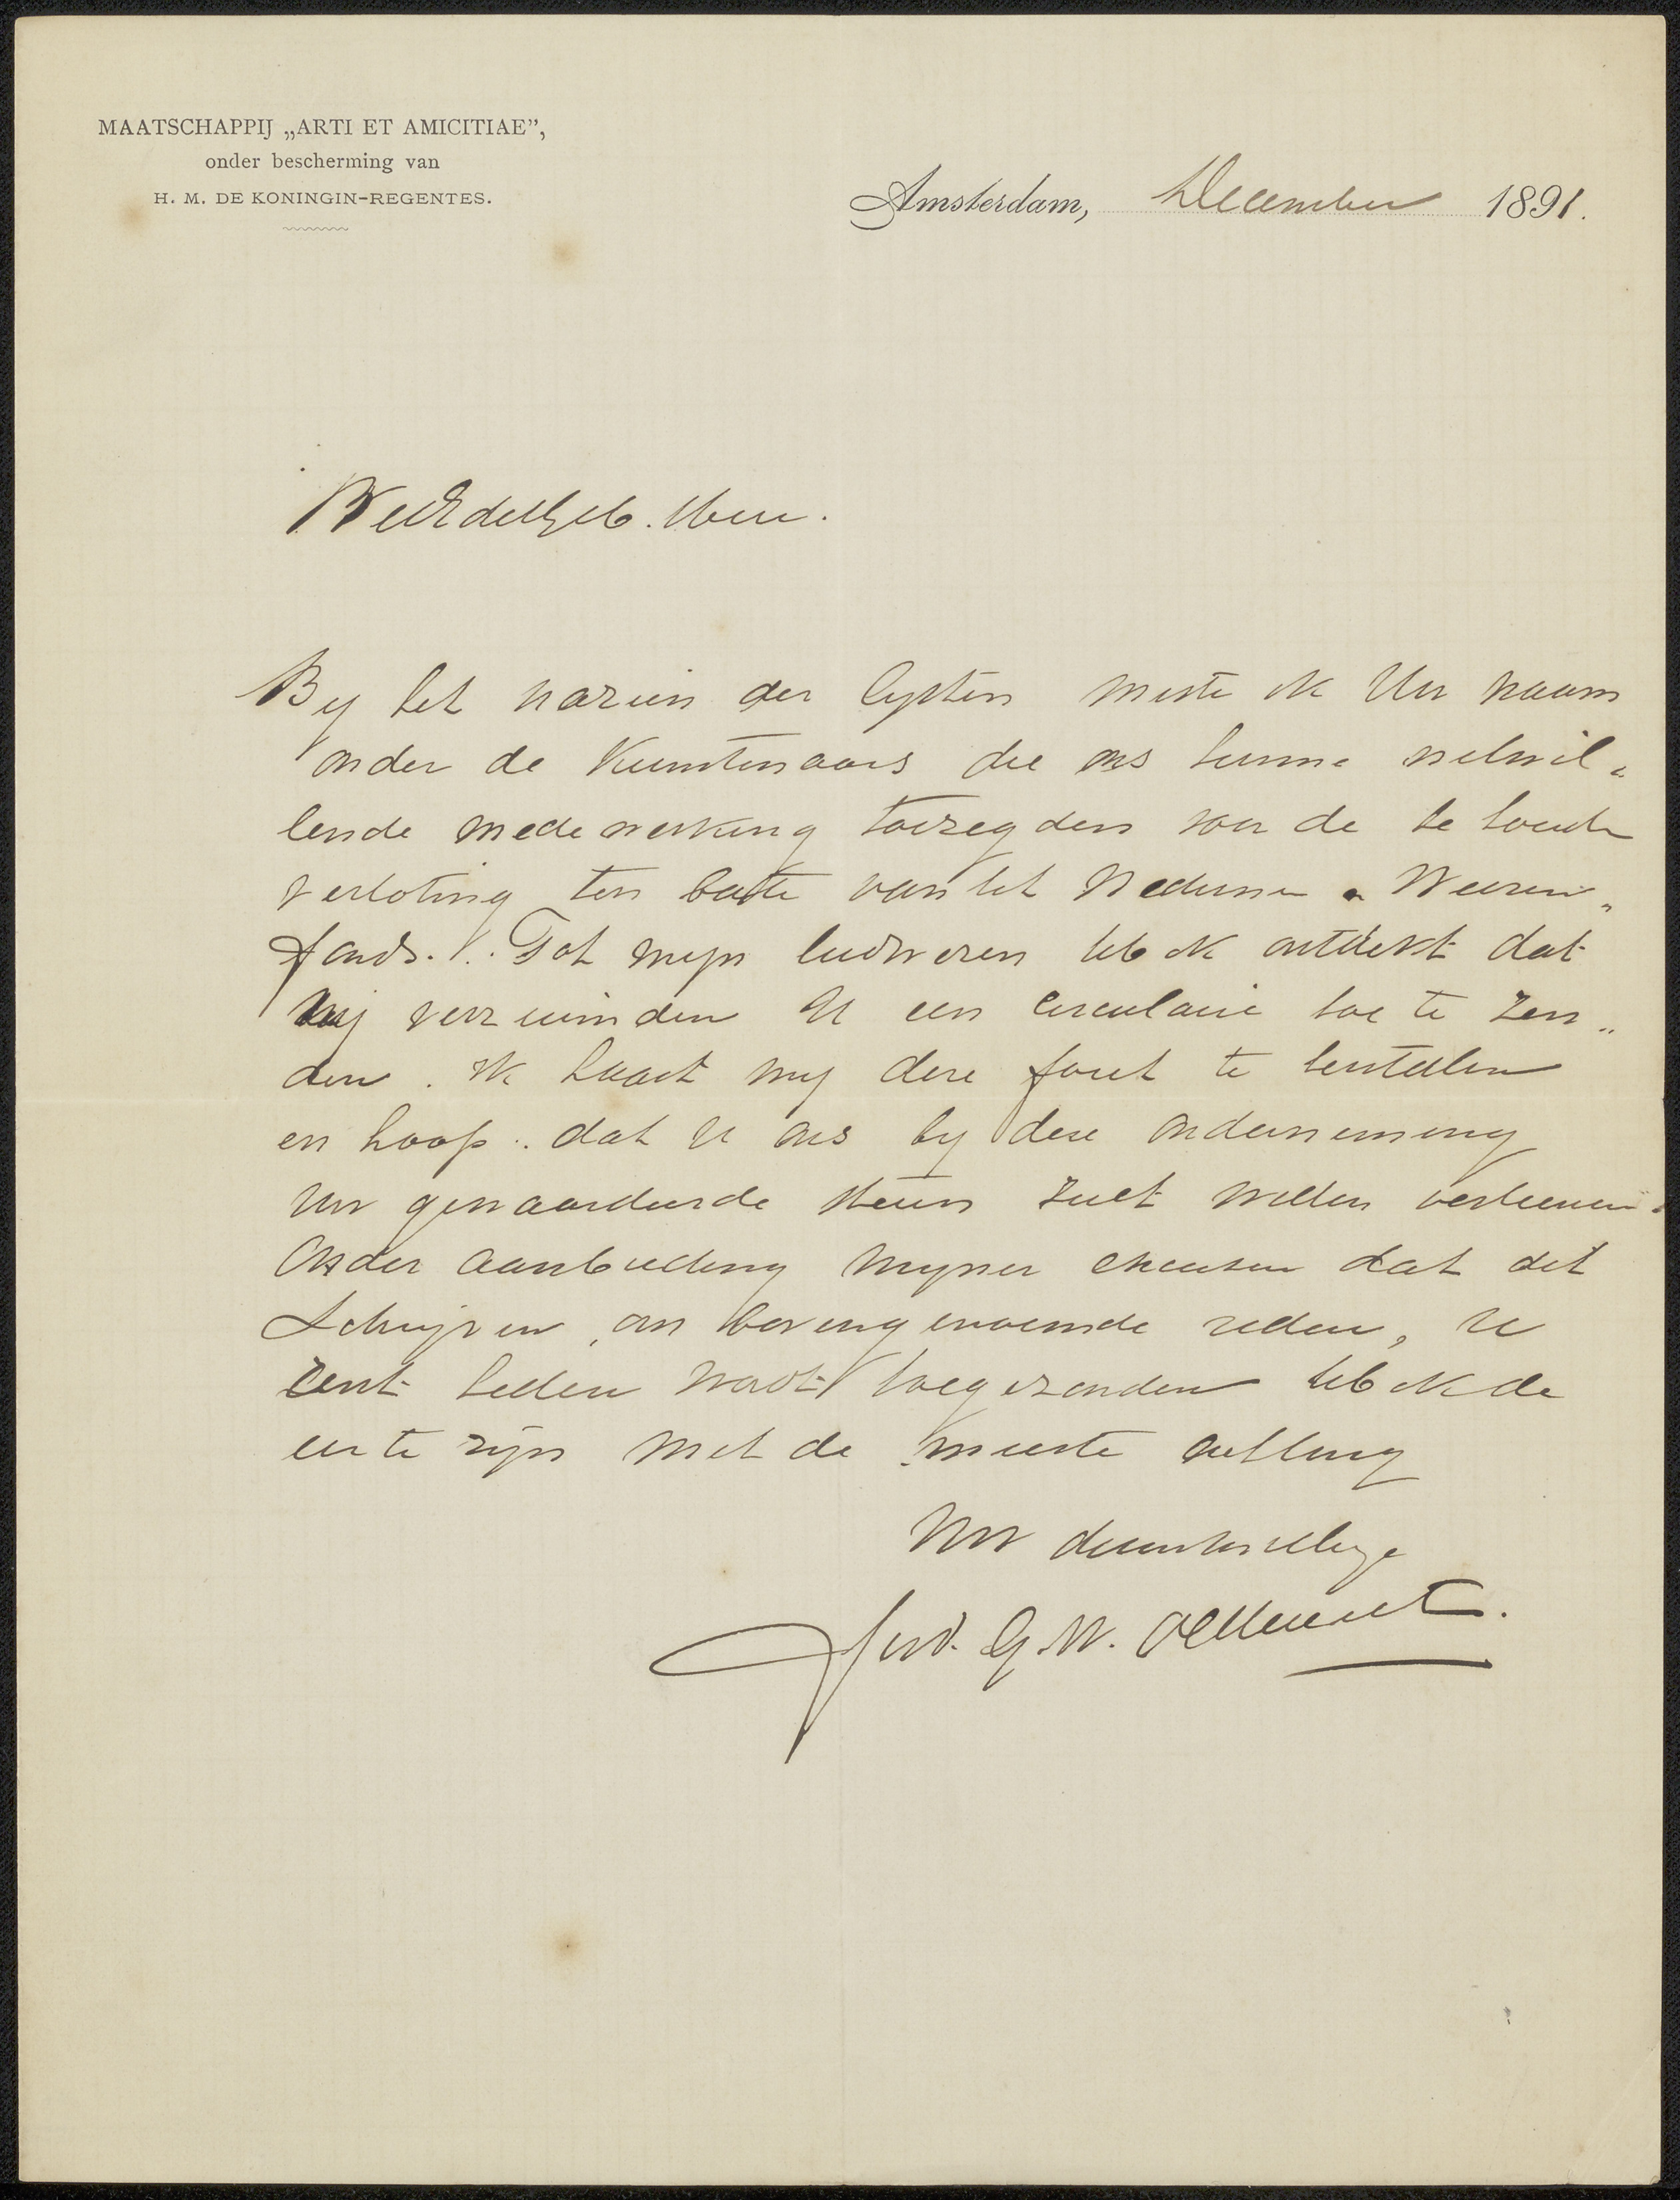 MAATSCHAPPIJ „ARTI ET AMICITIAE”,
onder bescherming van
H. M. DE KONINGIN-REGENTES.
Amsterdam, December 1891.
WelEdelGeb. Heer.
By het nazien der lysten miste ik Uw naam
onder de Kunstenaars die ons hunne welwil„
lende medewerking toezegden voor de te houden
verloting ten bate van het Weduwen & Weezen„
fonds. Tot mijn leedwezen heb ik ontdekt dat
wij verzuimden U een circulaire toe te zen„
den. Ik haast my deze fout te herstellen
en hoop dat U ons by deze onderneming
Uw gewaardeerde steun zult willen verleenen.
Onder aanbieding myner excusen dat dit
Schrijven, om bovengenoemde reden, U
eerst heden wordt toegezonden heb ik de
eer te zijn met de meeste achting
Uw dienstwillige
G. W.